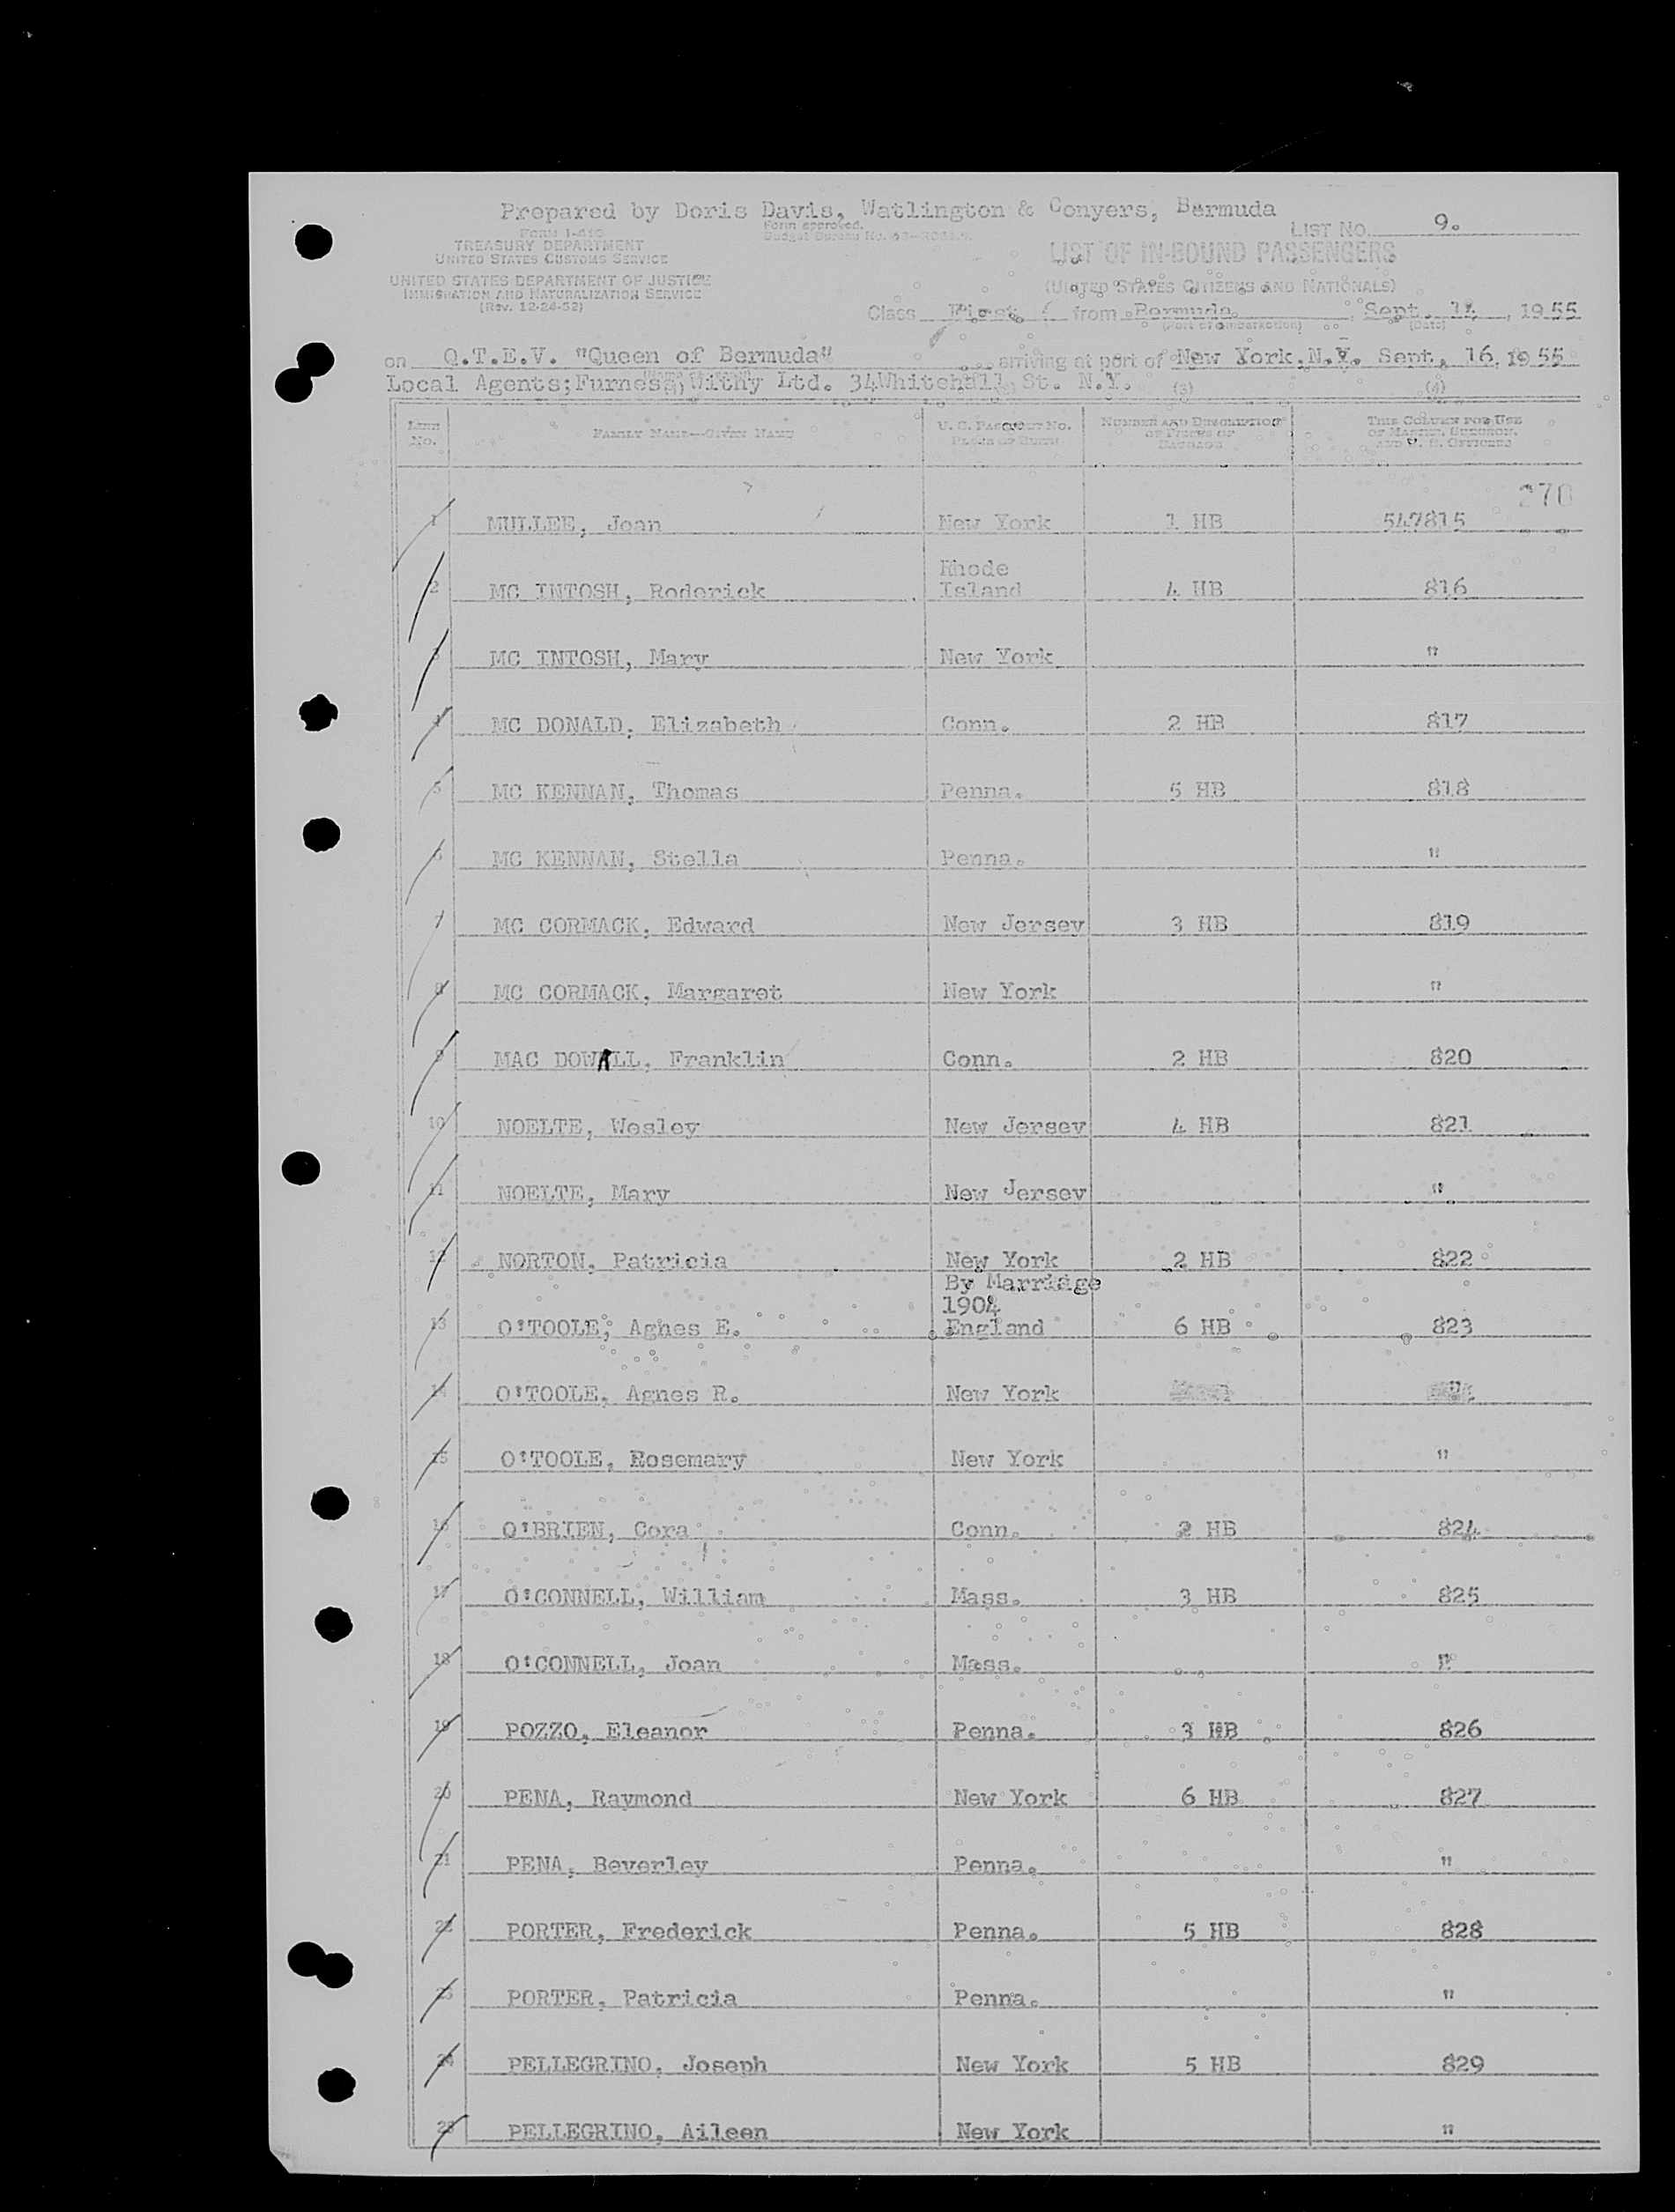 Prepared by Doris Davis, Watlington & Conyers, Bermuda
Form approved.
LIST No. 9.
Form I-416
TREASURY DEPARTMENT
UNITED STATES CUSTOMS SERVICE
LIST OF IN-BOUND PASSENGERS
UNITED STATES DEPARTMENT OF JUSTICE
IMMIGRATION AND NATURALIZATION SERVICE
(Rev. 12-24-52)
(UNITED STATES CITIZENS AND NATIONALS)
Class First from Bermuda, Sept. 14, 1955
(Port of embarkation) (Date)
on Q.T.E.V. "Queen of Bermuda" arriving at port of New York,N.Y. Sept. 16, 1955
Local Agents;Furness, Withy Ltd. 34Whitehall St. N.Y.
(3) (4)
LINE No. FAMILY NAME—GIVEN NAME U. S. PASSPORT No. PLACE OF BIRTH NUMBER AND DESCRIPTION OF PIECES OF BAGGAGE THIS COLUMN FOR USE OF MASTER, SURGEON, AND U. S. OFFICERS
1 MULLEE, Joan New York 1 HB 547815
2 MC INTOSH, Roderick Rhode Island 4 HB 816
3 MC INTOSH, Mary New York "
4 MC DONALD, Elizabeth Conn. 2 HB 817
5 MC KENNAN, Thomas Penna. 5 HB 818
6 MC KENNAN, Stella Penna. "
7 MC CORMACK, Edward New Jersey 3 HB 819
8 MC CORMACK, Margaret New York "
9 MAC DOWALL, Franklin Conn. 2 HB 820
10 NOELTE, Wesley New Jersey 4 HB 821
11 NOELTE, Mary New Jersey "
12 NORTON, Patricia New York 2 HB 822
By Marridge
1904
13 O'TOOLE, Aghes E. England 6 HB 823
14 O'TOOLE, Agnes R. New York "
15 O'TOOLE, Rosemary New York "
16 O'BRIEN, Cora Conn. 2 HB 824
17 O'CONNELL, William Mass. 3 HB 825
18 O'CONNELL, Joan Mass. "
19 POZZO, Eleanor Penna. 3 HB 826
20 PENA, Raymond New York 6 HB 827
21 PENA, Beverley Penna. "
22 PORTER, Frederick Penna. 5 HB 828
23 PORTER, Patricia Penna. "
24 PELLEGRINO, Joseph New York 5 HB 829
25 PELLEGRINO, Aileen New York "